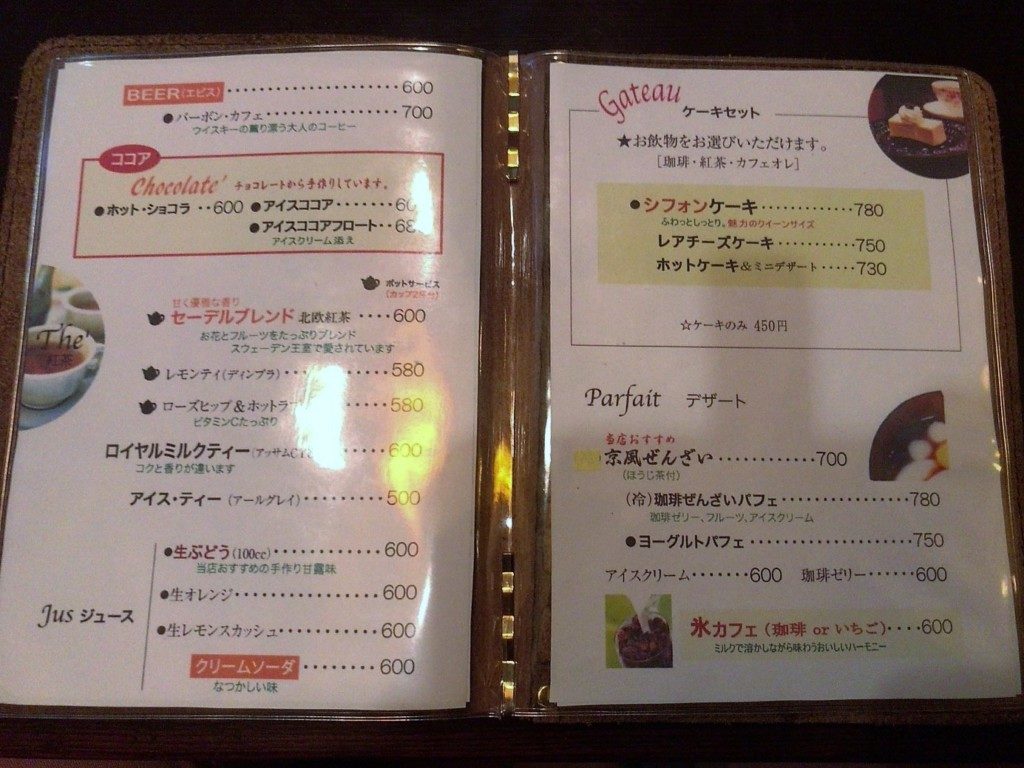 BEER(エビス) ························ 600
●バーボン・カフェ ················ 700
ウイスキーの薫り漂う大人のコーヒー
ココア
Chocolate' チョコレートから手作りしています。
●ホット・ショコラ ··600 ●アイスココア ······60
●アイスココアフロート··68
アイスクリーム添え
ポットサービス
(カップ2杯分)
The'
紅茶
甘く優雅な香り
セーデルブレンド 北欧紅茶 ····600
お花とフルーツをたっぷりブレンド
スウェーデン王室で愛されています
レモンティ(ディンブラ) ········580
ローズヒップ&ホット ····580
ビタミンCたっぷり
ロイヤルミルクティー(アッサムCT ······600
コクと香りが違います
アイス・ティー (アールグレイ)··········500
Jus ジュース
●生ぶどう(100cc)············600
当店おすすめの手作り甘露味
●生オレンジ··················600
●生レモンスカッシュ············600
クリームソーダ ········600
なつかしい味
Gateau ケーキセット
★お飲物をお選びいただけます。
[珈琲・紅茶・カフェオレ]
●シフォンケーキ············780
ふわっとしっとり。魅力のクイーンサイズ
レアチーズケーキ··········750
ホットケーキ&ミニデザート·····730
☆ケーキのみ 450円
Parfait デザート
当店おすすめ
京風ぜんざい ············700
(ほうじ茶付)
(冷)珈琲ぜんざいパフェ···············780
珈琲ゼリー、フルーツ、アイスクリーム
●ヨーグルトパフェ ···············750
アイスクリーム·······600 珈琲ゼリー······600
氷カフェ(珈琲 or いちご)····600
ミルクで溶かしながら味わうおいしいハーモニー